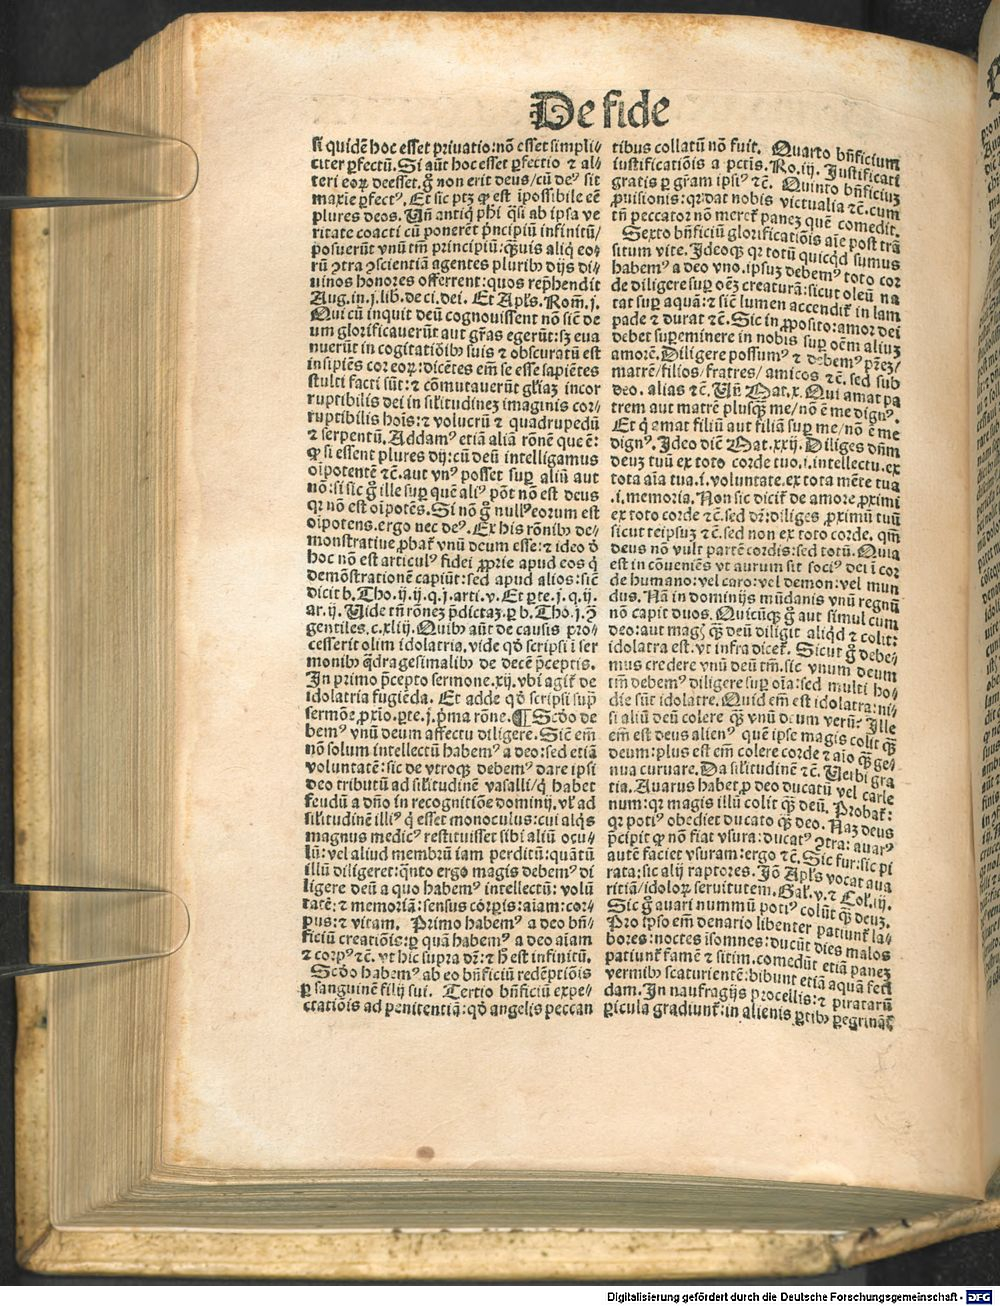 De fide
si quidē hoc esset priuatio: nō esset simpli⸗
citer ꝑfectū. Si aūt hoc esset ꝑfectio ⁊ al⸗
teri eoꝝ deesset. g̊ non erit deus / cū deꝰ sit
maxīe ꝑfectꝰ. Et sic ptꝫ ꝙ est īpossibile eē
plures deos. Uñ antiq̇ phī q̄si ab ipsa ve
ritate coacti cū ponerēt pͥncipiū infinitū /
posuerūt vnū tm̄ principiū: q̄uis aliq̇ eo⸗
rū ꝯtra ꝯscientiā agentes pluribꝰ dijs di⸗
uinos honores offerrent: quos rep̄hendit
Aug. in. j. lib. de ci. dei. Et Apl̄s. Rom̄. j.
Qui cū inquit deū cognouissent nō sic̄ de
um glorificauerūt aut gr̄as egerūt: sꝫ eua
nuerūt in cogitatiōibꝰ suis ⁊ obscuratū est
insipiēs cor eoꝝ: dicētes em̄ se esse sapiētes
stulti facti sūt: ⁊ cōmutauerūt gl̄iaꝫ incor
ruptibilis dei in sil̄itudineꝫ imaginis cor⸗
ruptibilis hoīs: ⁊ volucrū ⁊ quadrupedū
⁊ serpentū. Addamꝰ etiā aliā rōnē que ē:
ꝙ si essent plures dij: cū deū intelligamus
oīpotentē ⁊c̄. aut vnꝰ posset suꝑ aliū aut
nō: si sic g̊ ille suꝑ quē aliꝰ pōt nō est deus
qꝛ nō est oīpotēs. Si nō g̊ nullꝰ eorum est
oīpotens. ergo nec deꝰ. Ex his rōnibꝰ de⸗
monstratiue ꝓbat̄ vnū deum esse: ⁊ ideo ꝙ
hoc nō est articulꝰ fidei ꝓprie apud eos q̇
demōstrationē capiūt: sed apud alios: sic̄
dicit b. Tho. ij. ij. q. j. arti. v. Et ꝑte. j. q. ij.
ar. ij. Uide tn̄ rōneꝫ p̄dictaꝫ. ꝑ b. Tho. j. ꝯ
gentiles. c. xlij. Quibꝰ aūt de causis pro⸗
cesserit olim idolatria. vide qd̄ scripsi ī ser
monibꝰ q̄dragesimalibꝰ de decē p̄ceptis.
In primo p̄cepto sermone. xij. vbi agit̄ de
idolatria fugiēda. Et adde qd̄ scripsi supͣ
sermōe ꝓxīo. ꝑte. j. pͥma rōne. ¶ Scd̄o de
bemꝰ vnū deum affectu diligere. Sic̄ em̄
nō solum intellectū habemꝰ a deo: sed etiā
voluntatē: sic de vtroqꝫ debemꝰ dare ipsi
deo tributū ad sil̄itudinē vasalli / q̇ habet
feudū a dño in recognitiōe dominij. vl̄ ad
sil̄itudinē illiꝰ q̇ esset monoculus: cui alqs
magnus medicꝰ restituisset sibi aliū ocu⸗
lū: vel aliud membrū iam perditū: quātū
illū diligeret: qͣnto ergo magis debemꝰ di
ligere deū a quo habemꝰ intellectū: volū
tatē: ⁊ memoriā: sensus corꝑis: aīam: cor⸗
pus: ⁊ vitam. Primo habemꝰ a deo bñ⸗
ficiū creatiōis: ꝑ quā habemꝰ a deo aīam
⁊ corpꝰ ⁊c̄. vt hic supra dr̄: ⁊ h̄ est infinitū.
Scd̄o habemꝰ ab eo bñficiū redēptiōis
ꝑ sanguinē filij sui. Tertio bñficiū expe⸗
ctatiōis ad penitentiā: qd̄ angelis peccan
tibus collatū nō fuit. Quarto bñficium
iustificatiōis a pctīs. Ro. iij. Justificati
gratis ꝑ grām ipsiꝰ ⁊c̄. Quinto bñficiuꝫ
ꝓuisionis: qꝛ dat nobis victualia ⁊c̄. cum
tn̄ peccator nō meret̄ paneꝫ quē comedit.
Sexto bñficiū glorificatiōis aīe post trā
situm vite. Ideoqꝫ qꝛ totū quicqd̄ sumus
habemꝰ a deo vno. ipsuꝫ debemꝰ toto cor
de diligere suꝑ oēꝫ creaturā: sicut oleū na
tat suꝑ aquā: ⁊ sic̄ lumen accendit̄ in lam
pade ⁊ durat ⁊c̄. Sic in ꝓposito: amor dei
debet suꝑeminere in nobis suꝑ oēm aliuꝫ
amorē. Diligere possumꝰ ⁊ debemꝰ pr̄eꝫ /
matrē / filios / fratres / amicos ⁊c̄. sed sub
deo. alias ⁊c̄. Uñ Mat. x. Qui amat pa
trem aut matrē plusq̄ꝫ me / nō ē me dignꝰ.
Et q̇ amat filiū aut filiā suꝑ me / nō ē me
dignꝰ. Ideo dic̄ Mat. xxij. Diliges dñm
deuꝫ tuū ex toto corde tuo. i. intellectu. ex
tota aīa tua. i. voluntate. ex tota mēte tua
. i. memoria. Non sic dicit̄ de amore ꝓximi
ex toto corde ⁊c̄. sed dr̄: diliges ꝓximū tuū
sicut teipsuꝫ ⁊c̄. sed non ex toto corde. qm̄
deus nō vult partē cordis: sed totū. Quia
est in cōueniēs vt aurum sit sociꝰ dei ī cor
de humano: vel caro: vel demon: vel mun
dus. Nā in dominijs mūdanis vnū regnū
nō capit duos. Quicūqꝫ g̊ aut simul cum
deo: aut magꝭ q̄ꝫ deū diligit aliqd̄ ⁊ colit:
idolatra est. vt infra dicet̄. Sicut g̊ debe⸗
mus credere vnū deū tm̄. sic vnum deum
tm̄ debemꝰ diligere suꝑ oīa: sed multi ho⸗
die sūt idolatre. Quid em̄ est idolatra: ni⸗
si aliū deū colere q̄ꝫ vnū deum verū? Ille
em̄ est deus alienꝰ quē ipse magis colit q̄ꝫ
deum: plus est em̄ colere corde ⁊ aīo q̄ꝫ ge⸗
nua curuare. Da sil̄itudinē ⁊c̄. Uerbi gra
tia. Auarus habet ꝓ deo ducatū vel carle
num: qꝛ magis illū colit q̄ꝫ deū. Probat̄:
qꝛ potiꝰ obediet ducato q̄ꝫ deo. Naꝫ deus
p̄cipit ꝙ nō fiat vsura: ducatꝰ ꝯtra: auarꝰ
autē faciet vsuram: ergo ⁊c̄. Sic fur: sic pi
rata: sic alij raptores. Jō Apl̄s vocat aua
ritiā / idoloꝝ seruitutem. Gal̄. v. ⁊ Col̄. iij.
Sic g̊ auari nummū potiꝰ colūt q̄ꝫ deuꝫ.
Pro ipso em̄ denario libenter patiunt̄ la⸗
bores: noctes īsomnes: ducūt dies malos
patiunt̄ famē ⁊ sitim. comedūt etiā paneꝫ
vermibꝰ scaturientē: bibunt etiā aquā feti
dam. In naufragijs procellis: ⁊ piratarū
ꝑicula gradiunt̄: in alienis ꝑtibꝰ ꝑegrinā